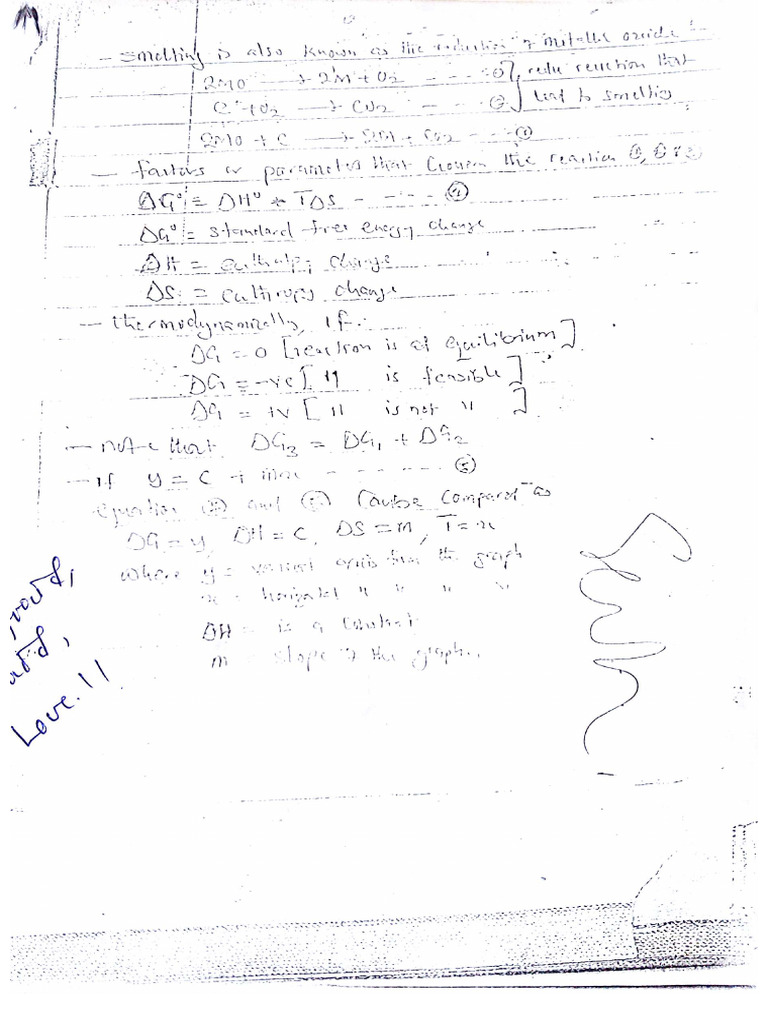 - smelting is also known as the reduction of metallic oxide
2MO → 2M + O2 - - - - ①
C + O2 → CO2 - - - ②
redu reaction that lead to smelting
2MO + C → 2M + CO2 - - - ③
- factors or parameter that Govern the reaction ①, ② & ③
ΔG° = ΔH° + TΔS - - - - - ④
ΔG° = standard free energy change
ΔH = enthalpy change
ΔS = enthropy change
- thermodynamically, if:
ΔG = 0 [reaction is at equilibrium]
ΔG = -ve [ 11 is feasible]
ΔG = +v [ 11 is not 11 ]
- note that ΔG3 = ΔG1 + ΔG2
- if y = C + mx - - - - - - - ⑤
equation and can be compared as
ΔG = y, ΔH = C, ΔS = m, T = x
where y = vertical axis from the graph
x = horizontal 11 11 11 11
ΔH = is a constant
m = slope of the graph.
Love.11